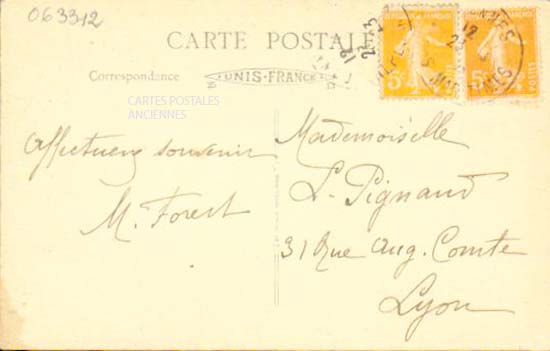 063312
CARTE POSTALE
Correspondance
UNIS-FRANCE
CARTES POSTALES
ANCIENNES
5c
5c
POSTES
Affectueux souvenir
M. Forest
Mademoiselle
L. Pignaud
31 Rue Aug. Comte
Lyon